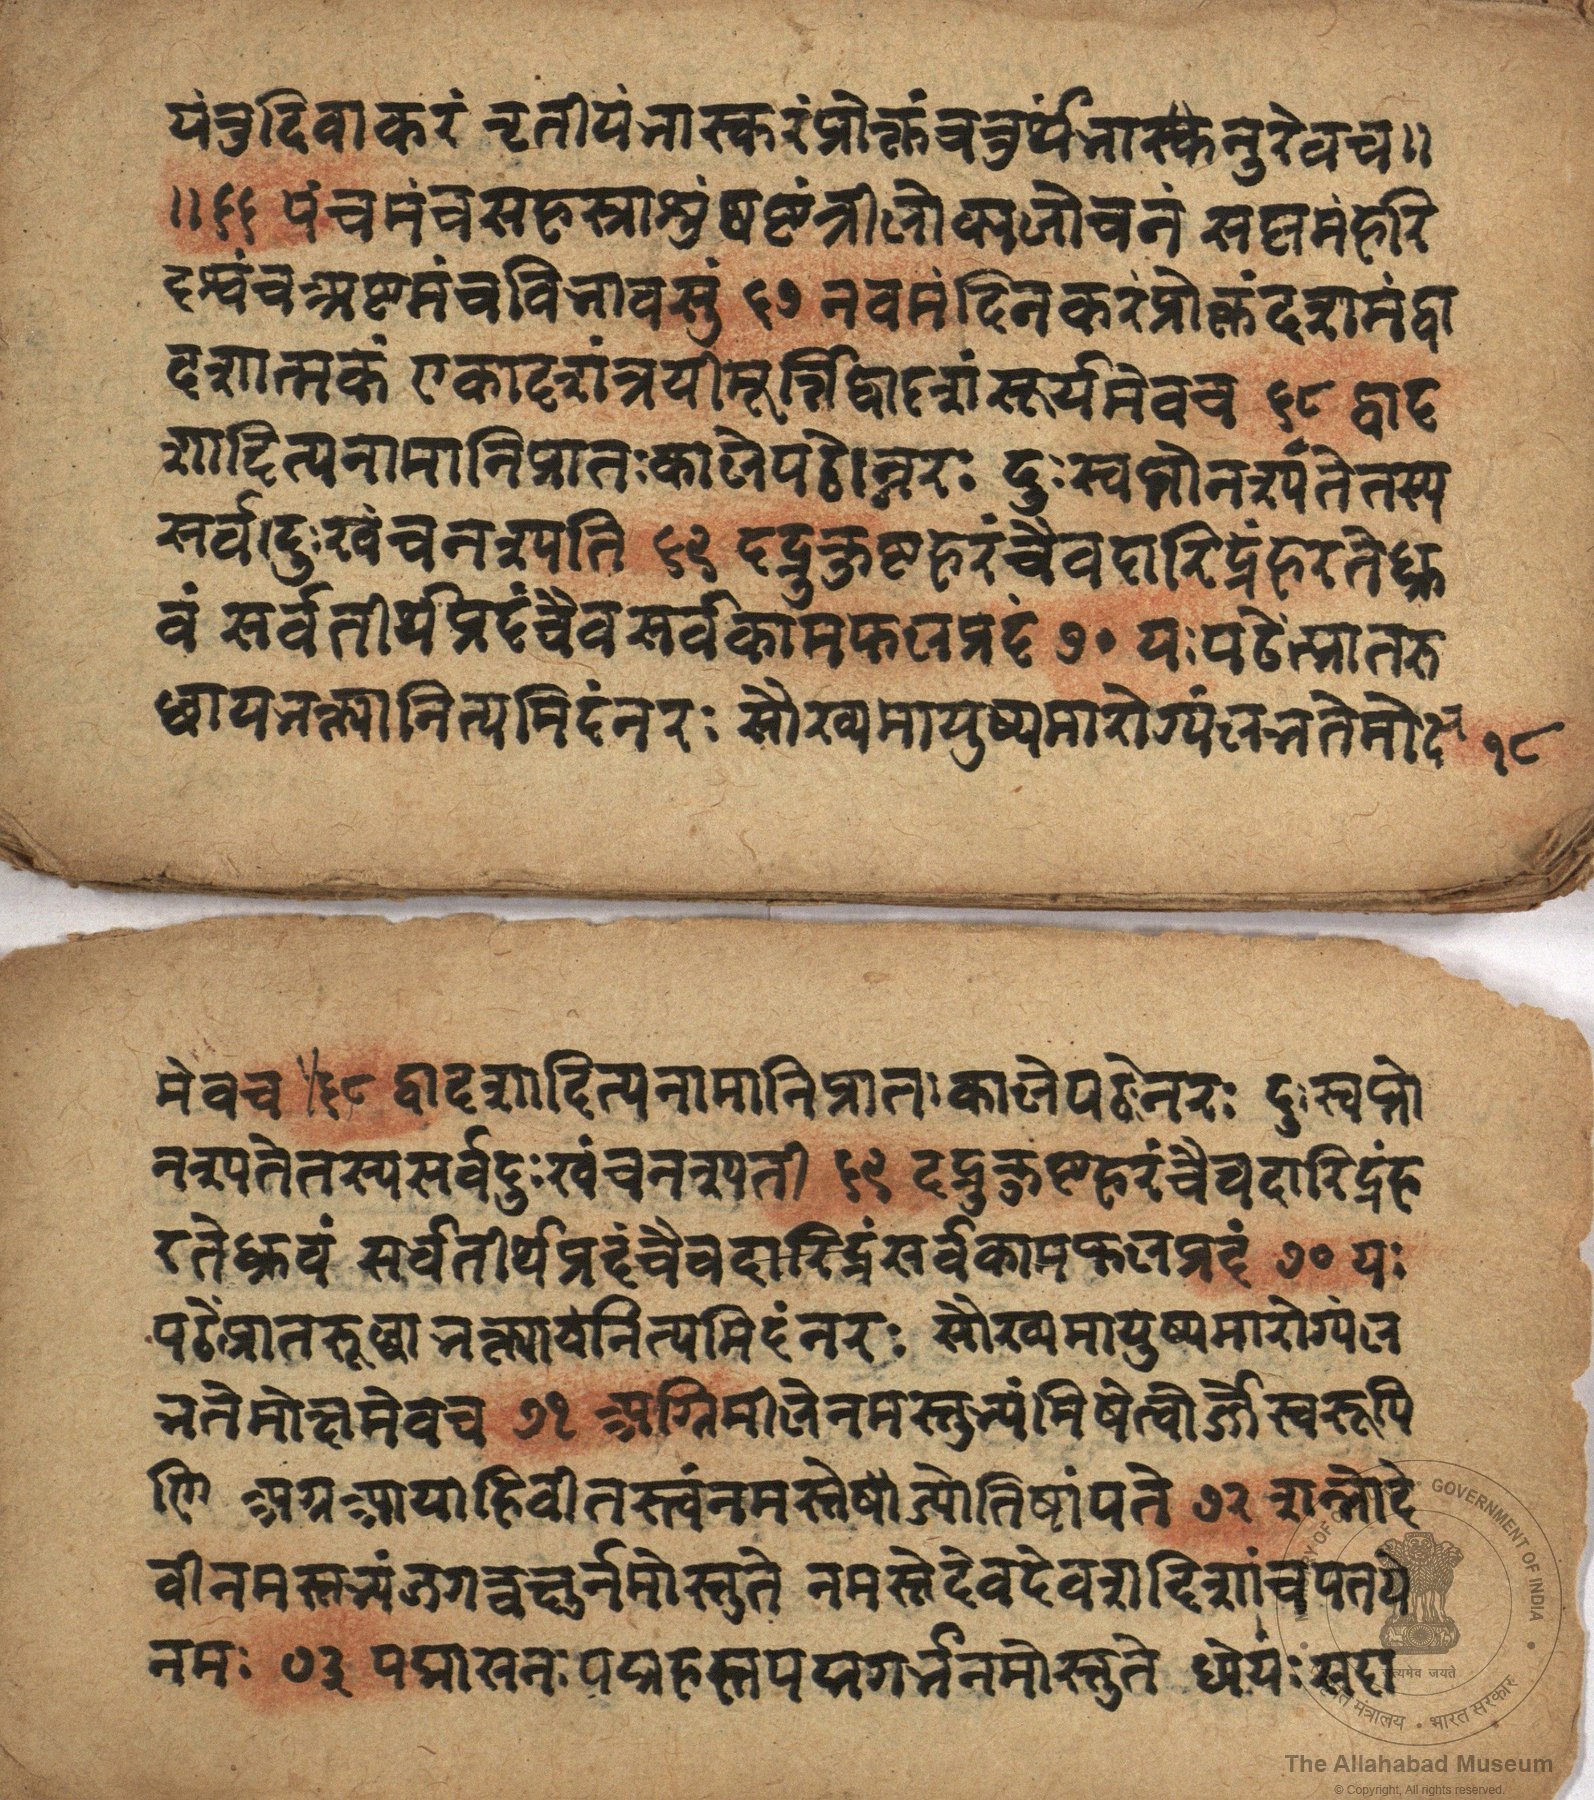 यंतुदिवाकरं तृतीयंभास्करंप्रोक्तंचतुर्थंभास्केनुरेवच॥
॥६६ पंचमंचसहस्त्राशुंषष्टंत्रीलोक्यलोचनं सप्तमंहरि
दश्वंचअष्टमंचविभावसुं ६७ नवमंदिनकरंप्रोक्तंदशमंद्वा
दशात्मकं एकादशंत्रयीमूर्त्तिद्वादशंसूर्यमेवच ६८ द्वाद
शादित्यनामानिप्रातःकालेपठेान्नरः दुःस्वप्नोनश्यंतेतस्य
सर्वदुःखंचनश्यति ६९ दद्रुकुष्टहरंचैवदारिद्रंहरतेध्रु
वं सर्वतीर्थप्रदंचैवसर्वकामफलप्रदं ७० यःपठेत्प्रातरु
थ्थायभक्त्यानित्यमिदंनरः सौख्यमायुष्यमारोग्यंलभतेमोक्ष १८
मेवच ६८ द्वादशादित्यनामानिप्रातःकालेपठेनरः दुःस्वप्नो
नश्यतेतस्यसर्वदुःखंचनश्यती ६९ दद्रुकुष्टहरंचैवदारिद्रंह
रतेध्रुवं सर्वतीर्थप्रदंचैवदारिद्रंसर्वकामफलप्रदं ७० यः
पठेप्रातरूथ्थाभक्त्यायनित्यमिदंनरः सौख्यमायुष्यमारोग्यंल
भतेमोक्षमेवच ७१ अग्निमीलेनमस्तुभ्यंमिषेत्वोर्जेस्वरूपि
णि अग्नआयाहिवीतस्त्वंनमस्तेषोज्योतिषांपते ७२ शन्नोदे
वीनमस्तभ्यंजगच्चक्षुर्नमोस्तुते नमस्तेदेवदेवशदिशांचपतये
नमः ७३ पद्मासनःपद्महस्तपद्मगर्भनमोस्तुते ध्येयंःसदा
GOVERNMENT OF INDIA
सत्यमेव जयते
मंत्रालय • भारत सरकार
The Allahabad Museum
© Copyright, All rights reserved.